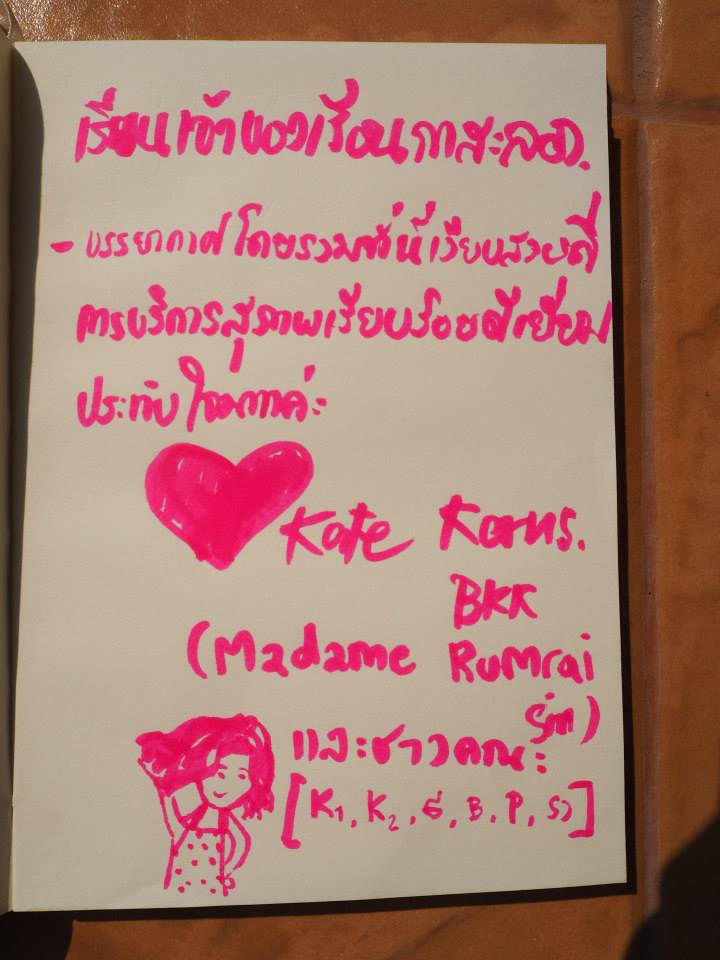 เรียนเจ้าของเรือนกาสะลอง.
- บรรยากาศโดยรวมที่นี่เงียบสวยดี
การบริการสุภาพเรียบร้อยดีเยี่ยม
ประทับใจมากค่ะ
Kate
BKK
(Madame Rumrai
และชาวคณะ
[K1, K2, B, P,